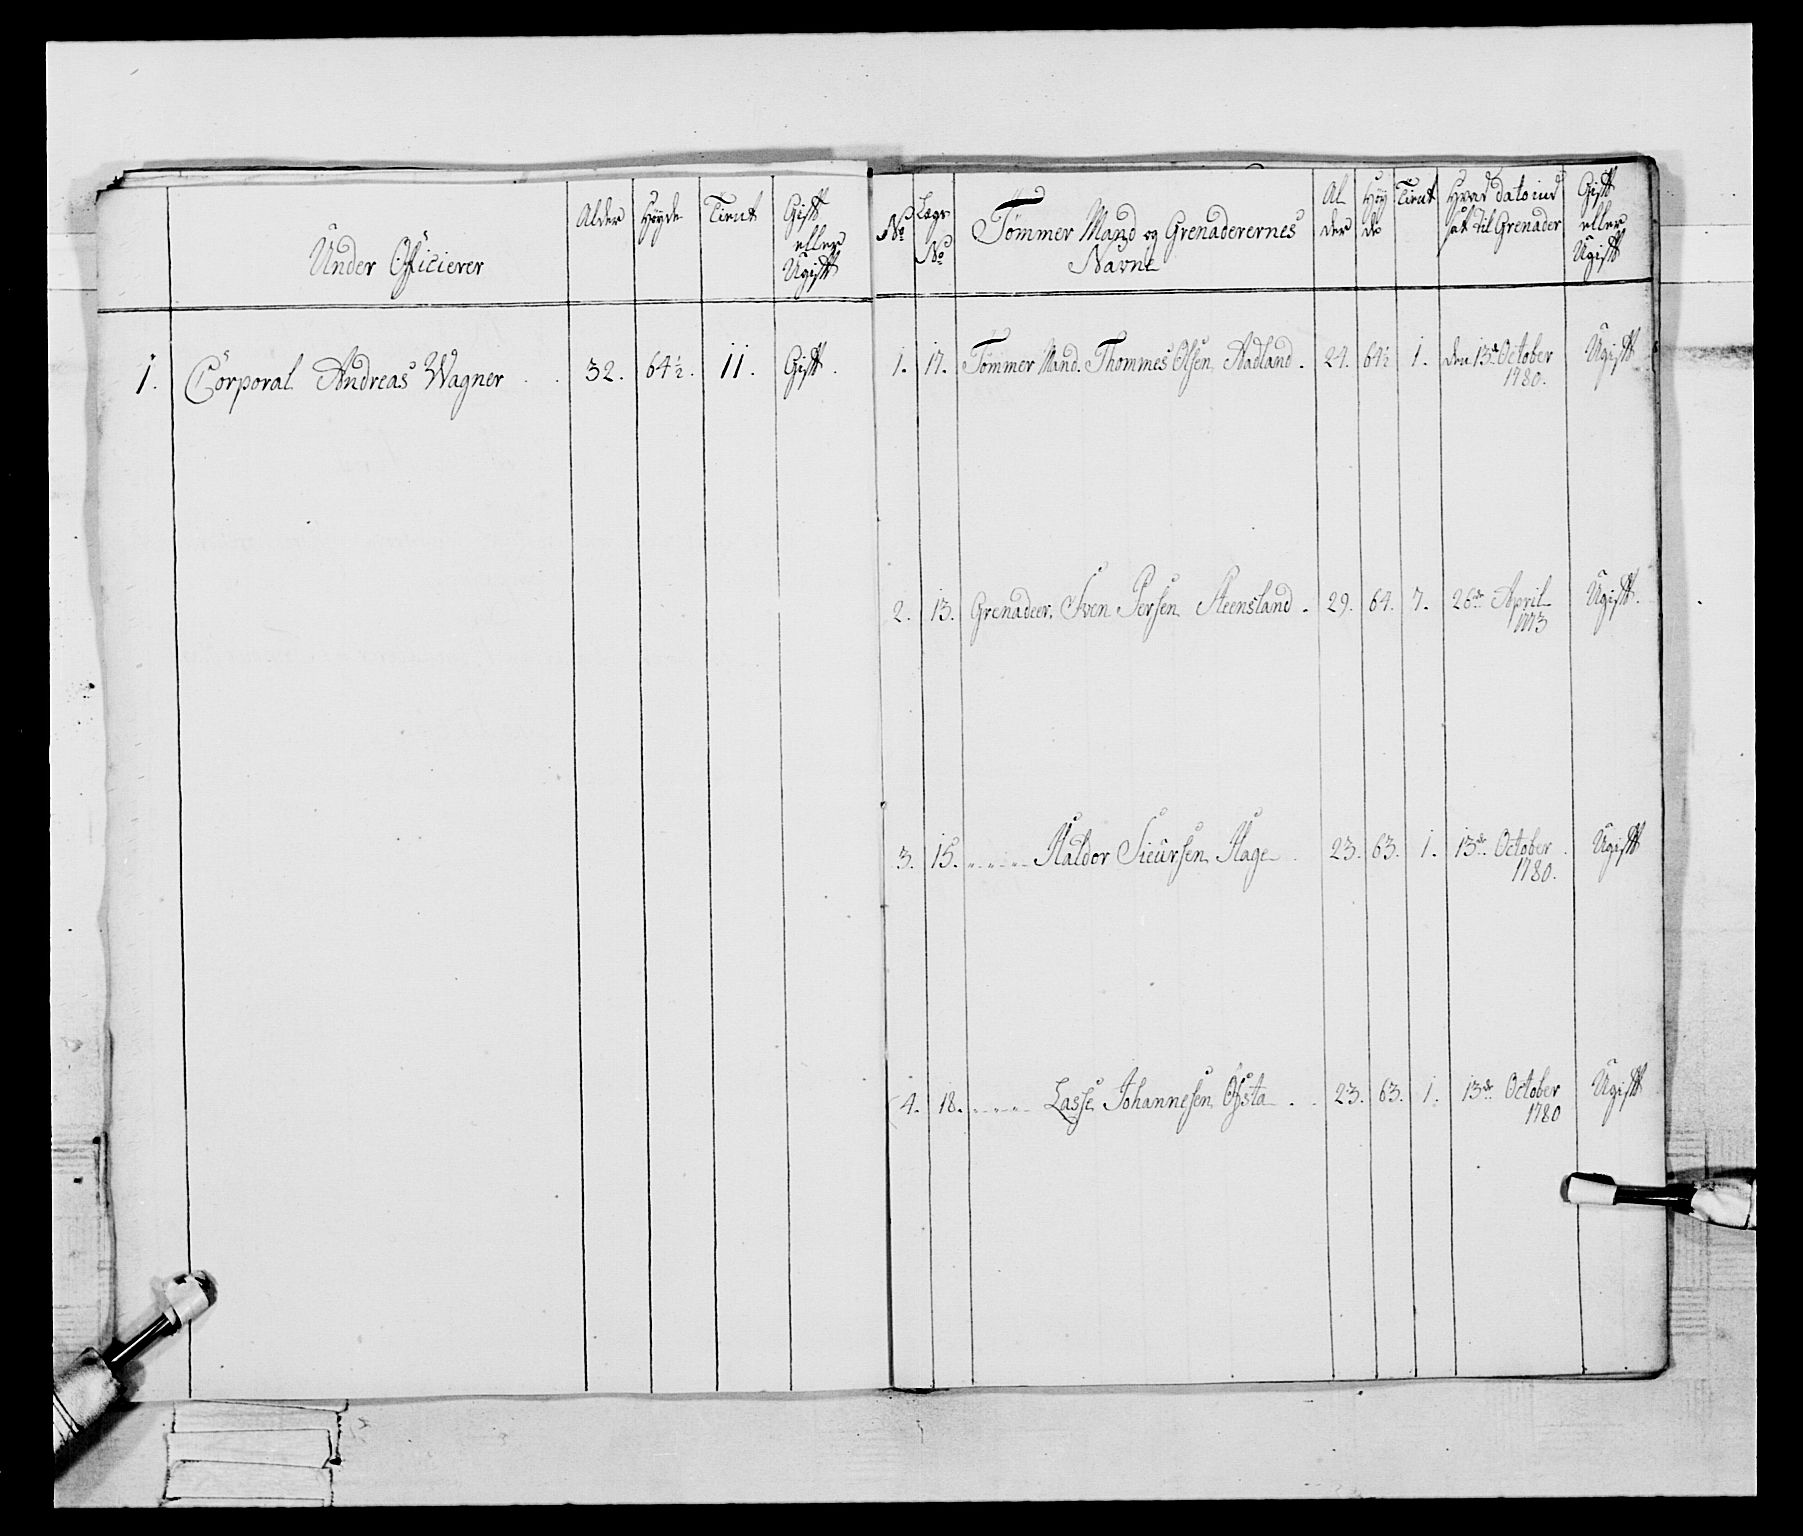 Under Officierer
Alder
Høyde
Tient
Gift
eller
Ugift
1. Corporal Andreas Wagner . . 32. 64½. 11. Gift.
No
Lægs
No
Tømmer Mand og Grenaderernes
Navne
Al
der
Høy
de
Tient
Hvad dato ind
sat til Grenader
Gift
eller
Ugift
1. 17. Tømmer Mand. Thommes Olsen Aadland. 24. 64½ 1. den 13de October
1780.
Ugift
2. 13. Grenadeer. Sven Persen Steensland. 29. 64. 7. 26de April
1773
Ugift.
3. 15. Haldor Sieursen Hage 23. 63. 1. 13de October
1780.
Ugift
4. 18. Lasse Johannesen Øfsta . . 23. 63. 1. 13de October
1780
Ugift